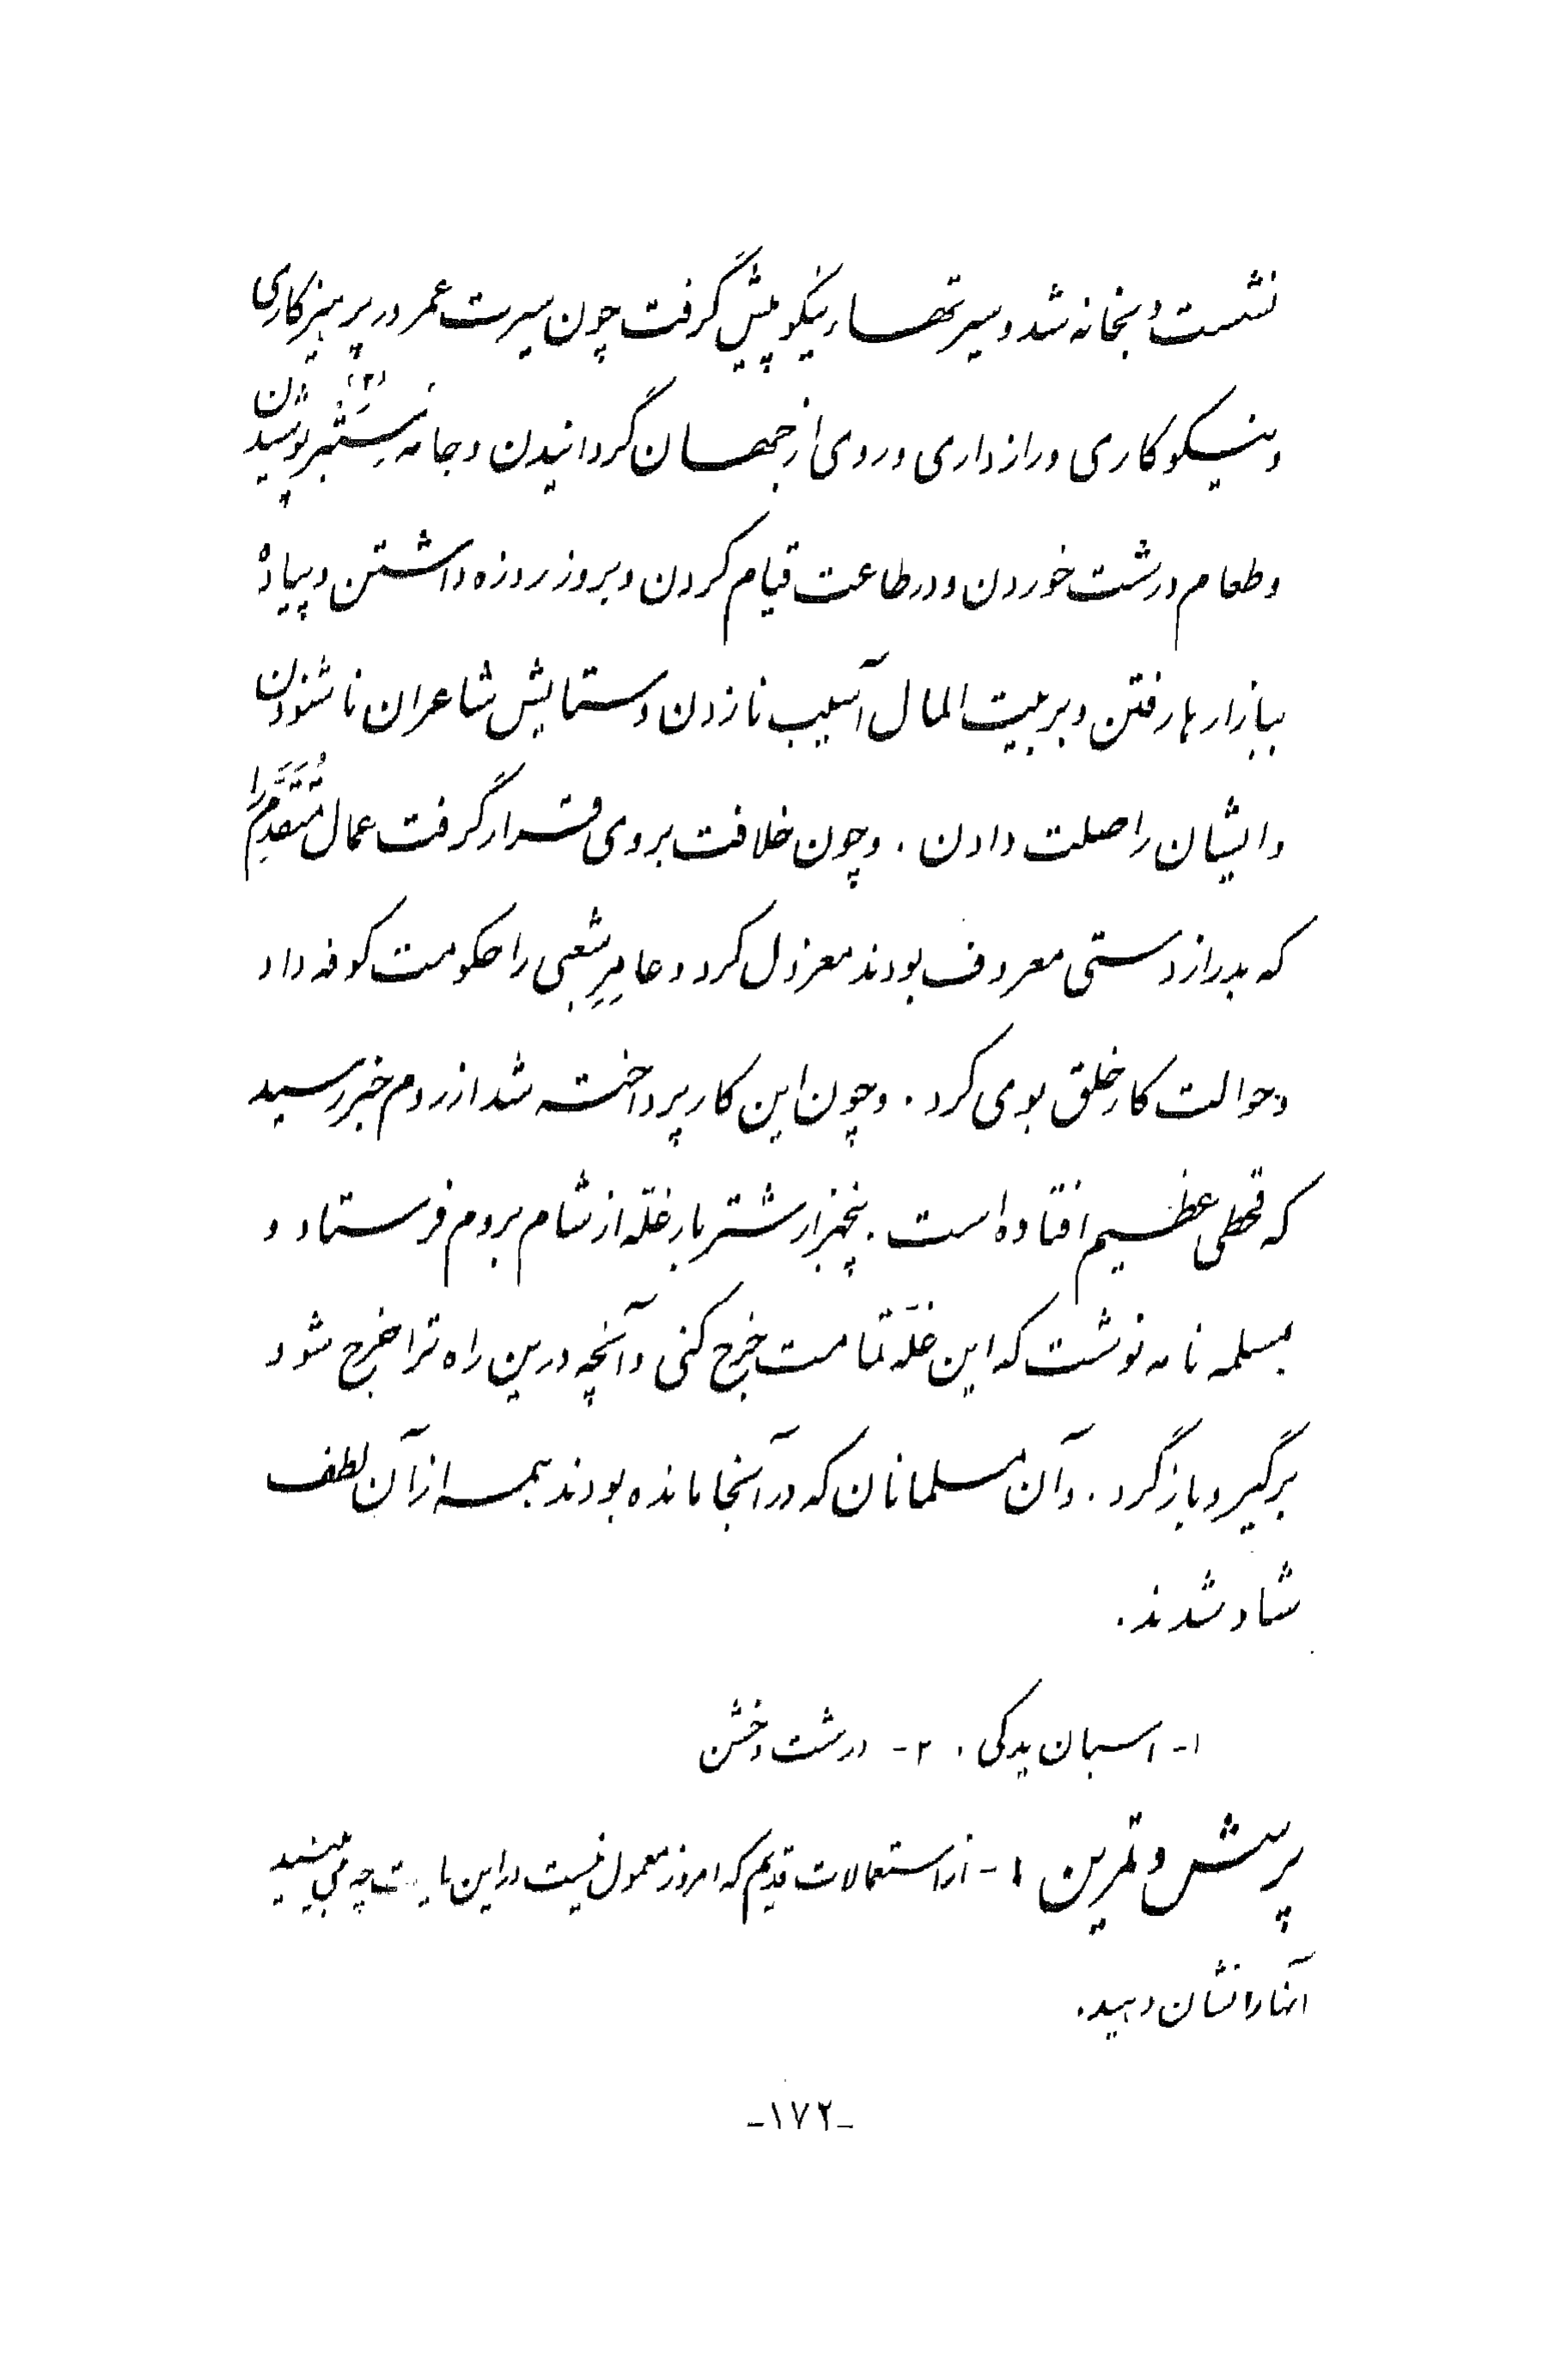 نشست و بخانه شد و سیرتهاء نیکو پیش گرفت چون سیرت عمر در پرهیزکاری
و نیکوکاری و رازداری و روی از جهان گردانیدن و جامه ستبر پوشیدن (۲)
و طعام درشت خوردن و در طاعت قیام کردن و بروز روزه داشتن و پیاده
ببازارها رفتن و بر بیت المال آسیب نازدن و ستایش شاعران ناشنودن
و ایشان را صلت دادن . و چون خلافت بروی قرار گرفت عمال مُتَقَدِّم را
که بدرازدستی معروف بودند معزول کرد و عامِرِ شعبی را حکومت کوفه داد
و حوالت کار خلق بوی کرد . و چون این کار پرداخته شد از روم خبر رسید
که قحطی عظیم افتاده است . پنجهزار شتر بار غلّه از شام بروم فرستاد و
بمسلمه نامه نوشت که این غلّه تمامت خرج کنی و آنچه درین راه ترا خرج شود
برگیر و بازگرد . و آن مسلمانان که در آنجا مانده بودند همه از آن لطف
شاد شدند .
۱- اسبان یدکی . ۲- درشت و خشن
پرسش و تمرین ۱- از استعمالات قدیم که امروز معمول نیست در این چه می‌بینید
آنها را نشان دهید .
-۱۷۲-